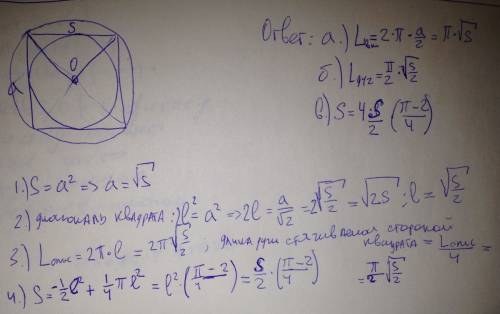 S
O
a
Ответ: а.) Lвпис=2·π·a/2=π·√S
б.) Lдуг=π/2·√(S/2)
в.) S=4·S/2(π-2/4)
1.) S=a²=>a=√S
2.) диагональ квадрата: 2l²=a²=>2l=a/√2=2√(S/2)=√2S; l=√(S/2)
3.) Lопис=2π·l=2π√(S/2); длина дуги стягиваемой стороной квадрата=Lопис/4=
=π/2√(S/2)
4.) S=-1/2l²+1/4πl²=l²·(π-2/4)=S/2·(π-2/4)